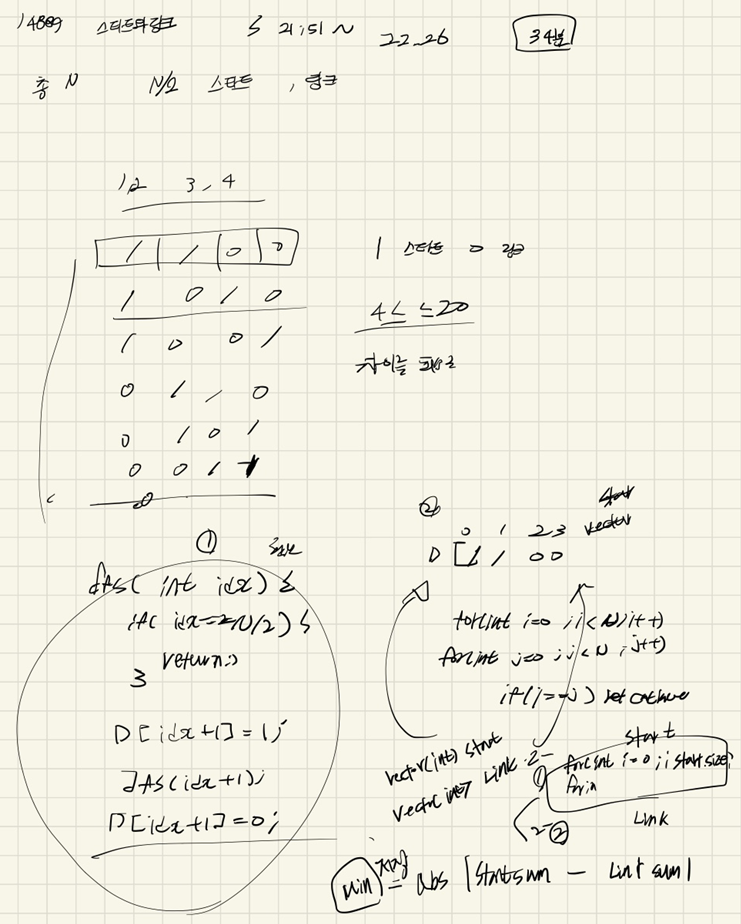 14889 스타트와링크 S 21:51 ~ 22:26 34분
총 N N/2 스타트 , 링크
1,2 3,4
1 1 0 0
1 스타트 0 링크
1 0 1 0
4≤ ≤20
1 0 0 1
차이를 최소로
0 1 1 0
0 1 0 1
0 0 1 1
①
dfs( int idx) {
if( idx==N/2) {
return;
}
D[idx+1]=1;
dfs(idx+1);
D[idx+1]=0;
②
0 1 2 3 vector
D [1 1 0 0
for(int i=0 ; i<N; i++)
for(int j=0 ; j<N ; j++)
if(i==j) continue
vector(int) start
vector(int) Link
2-① start
for(int i=0; i start size;
for
2-② Link
min = abs |startsum - Link sum|